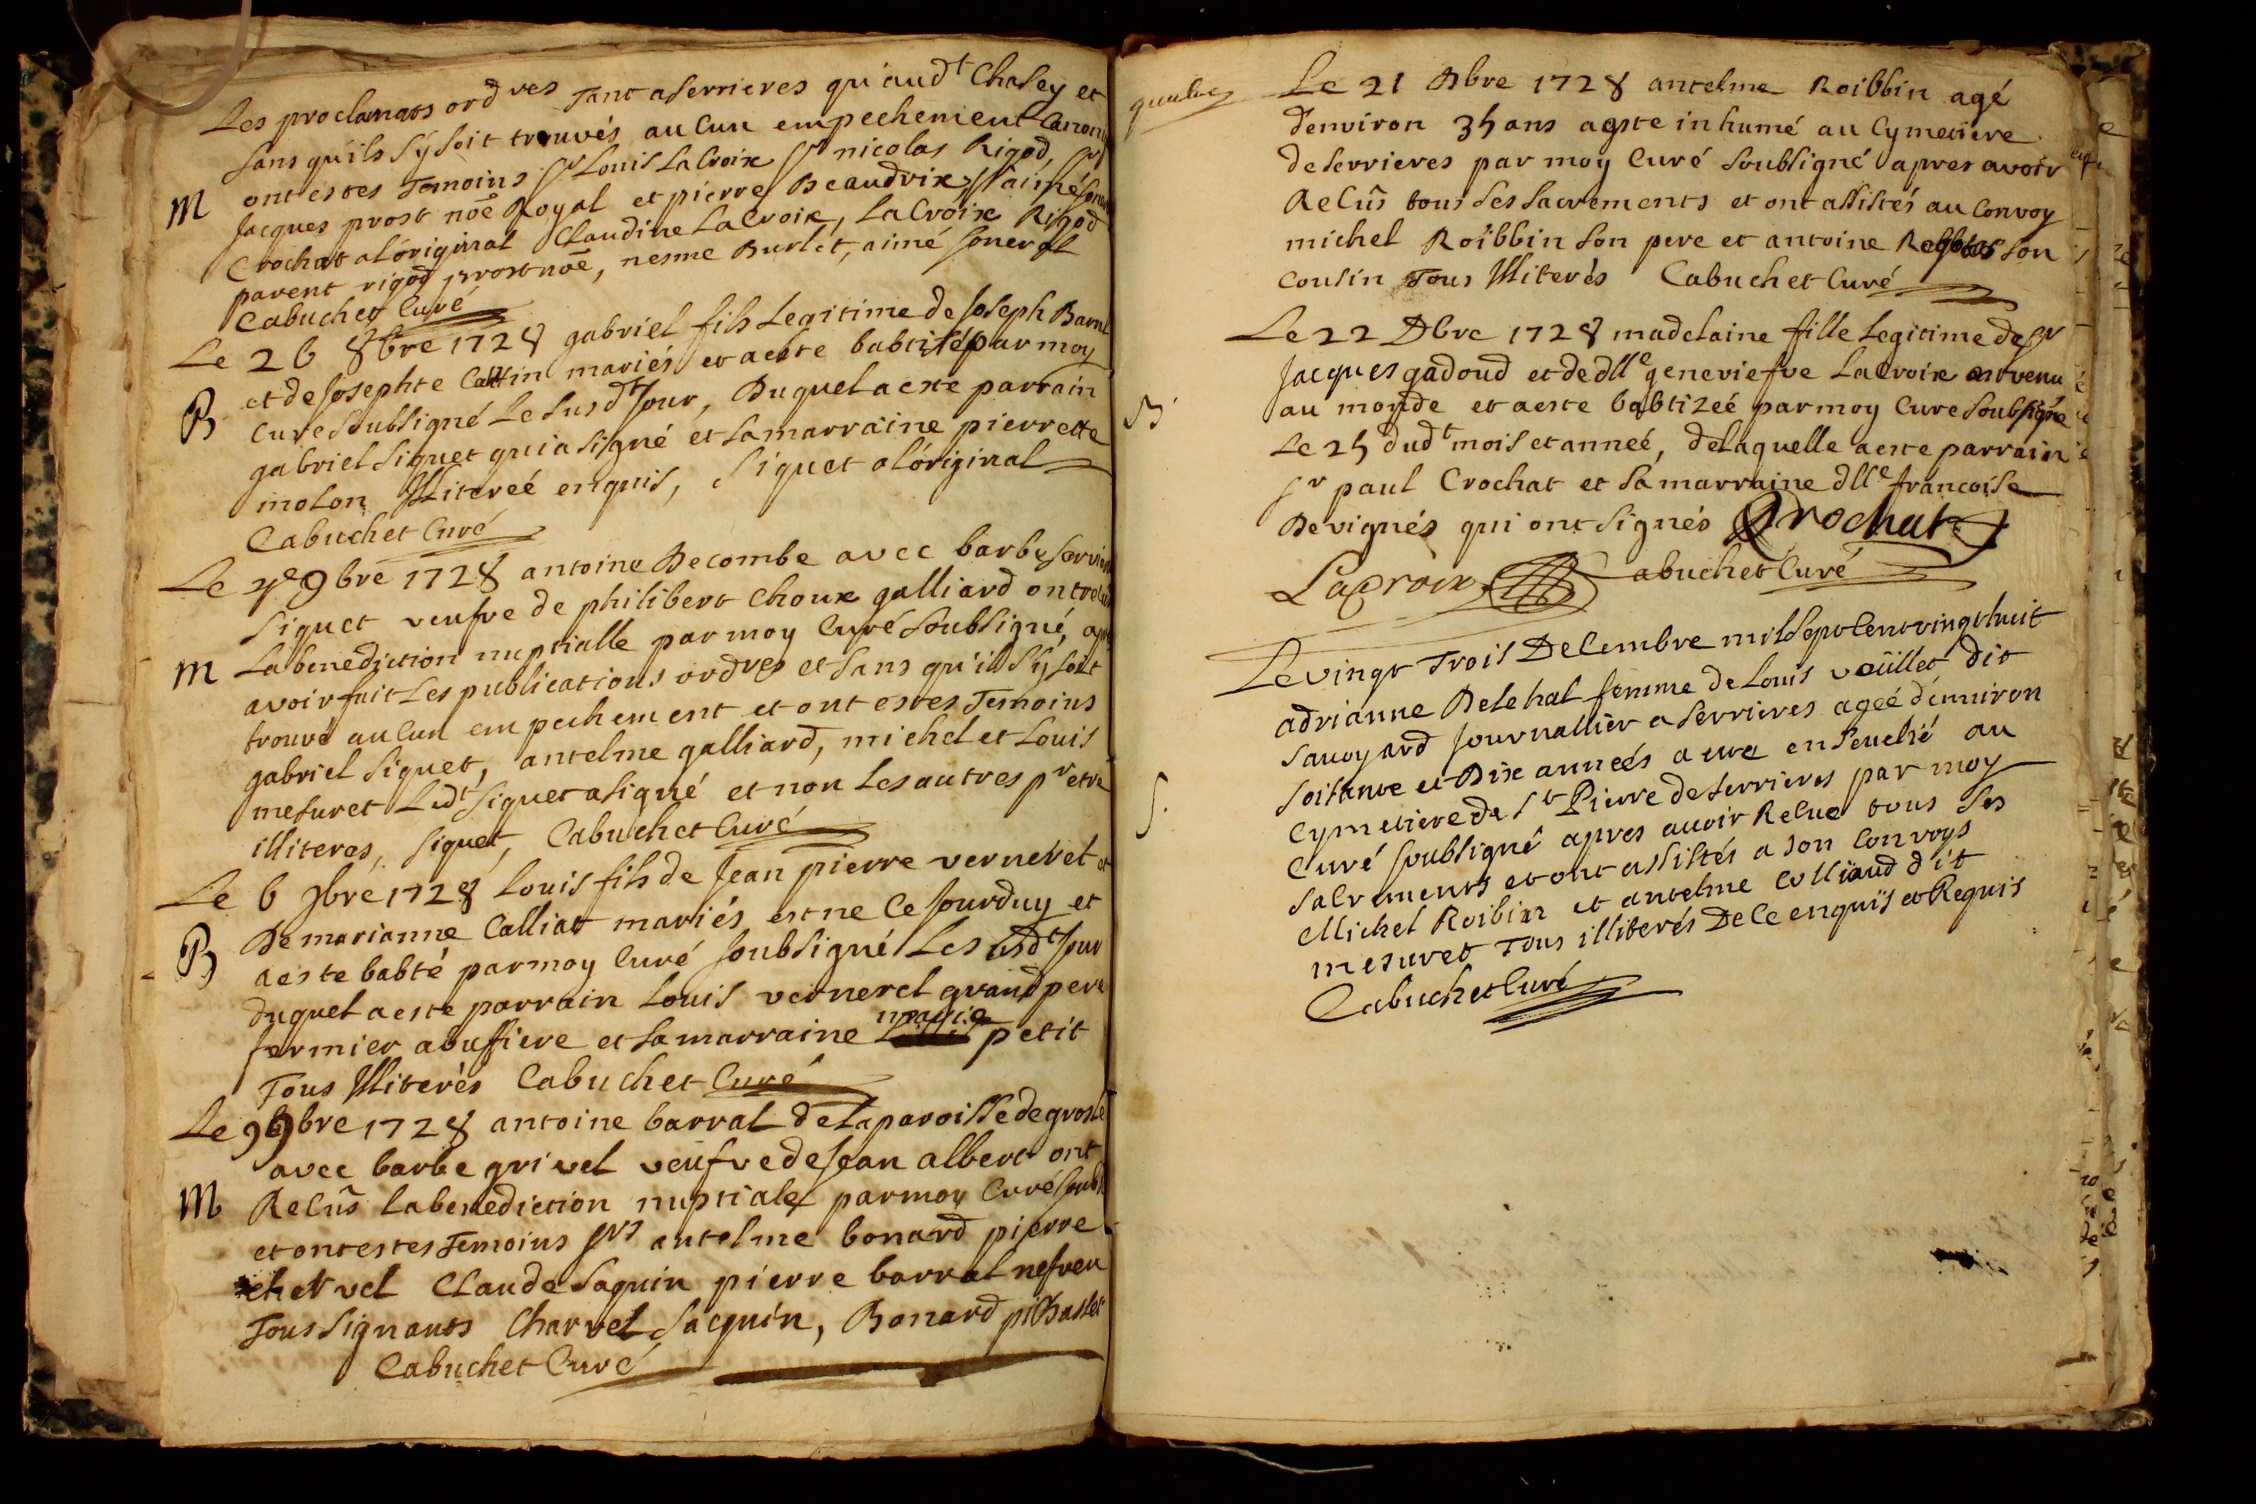 Les proclamaos ordres Tant a Serrieres qu'aud.t Chasey et
sans qu'ils s'y soit trouvés aucun empechement Canon
ont estes Temoins Sr Louis La Croix Sr nicolas Rigod, Sr
M
Jacques prost nõe Royal et pierre Beaudrix Sr aimé
Crochat a l'original Claudine La Croix, La Croix Rigod
parent rigod prost nõe, nesme Burlet, aimé
Cabuchet Curé
Le 26 8bre 1728 gabriel fils Legitime de Joseph
et de Josephte mariés et a este babtisé par moy
B
Curé Soubsigné Le susd.t Jour, Duquel a este parrain
gabriel Siquet qui a signé et sa marraine pierrette
molon Illitereé enquis, Siquet a l'original
Cabuchet Curé
Le 9bre 1728 antoine Decombe avec barbe
Siquet veufve de philibert Choux galliard ont
M
La benediction nuptialle par moy Curé Soubsigné,
avoir fait Les publications ordres et sans qu'il s'y soit
trouvé aucun empechement et ont estes Temoins
gabriel Siquet, antelme galliard, michel et Louis
mesuret Led.t Siquet a signé et non Les autres pr etre
illiteres, Siquet, Cabuchet Curé
Le 6 9bre 1728 Louis fils de Jean pierre verneret et
De marianne Calliat mariés est ne Ce Jourduy et
B
a este babté par moy Curé Soubsigné Les usd.t Jour
duquel a este parrain Louis verneret grand pere
marie
fermier a buffiere et sa marraine petit
Tous Illiterés Cabuchet Curé
Le 9 9bre 1728 antoine barral de La paroisse de grosle
avec barbe grivel veufve de Jean albert ont
M
Recûs La benediction nuptiale par moy Curé
et ont estes Temoins Srs antelme bonard pierre
Claude Saquin pierre barral nefveu
Tous signants Charvet Sacquin, Bonard
Cabuchet Curé
Le 21 Dbre 1728 antelme Roibbin agé
d'environ 35 ans a este inhumé au Cymetiere
de Serrieres par moy Curé Soubsigné apres avoir
Recûs tous ses sacrements et ont assistés au Convoy
michel Roibbin son pere et antoine son
Cousin Tous Illiterés Cabuchet Curé
Le 22 Dbre 1728 madelaine fille Legitime de Sr
Jacques gadoud et de dlle geneviefve La Croix est venu
B
au monde et a este babtizeé par moy Cure soubsigné
Le 25 dud.t mois et anneé, de Laquelle a este parrain
Sr paul Crochat et sa marraine dlle francoise
Devignés qui ont signés Crochat
LaCroix Cabuchet Curé
Le vingt Trois Decembre mil Sept Cent vingt huit
adrianne Delehal femme de Louis voüillet dit
Savoyard Journallier a Serrieres ageé d'enuiron
Soisante et Dix anneés a ensevelié au
Cymetiere de St Pierre de Serrieres par moy
S.
Curé Soubsigné apres auoir Recue tous ses
sacrements et ont assistés a son Convoys
Michel Roibin et antelme Colliaud dit
mesuret Tous illiterés De Ce enquis et Requis
Cabuchet Curé